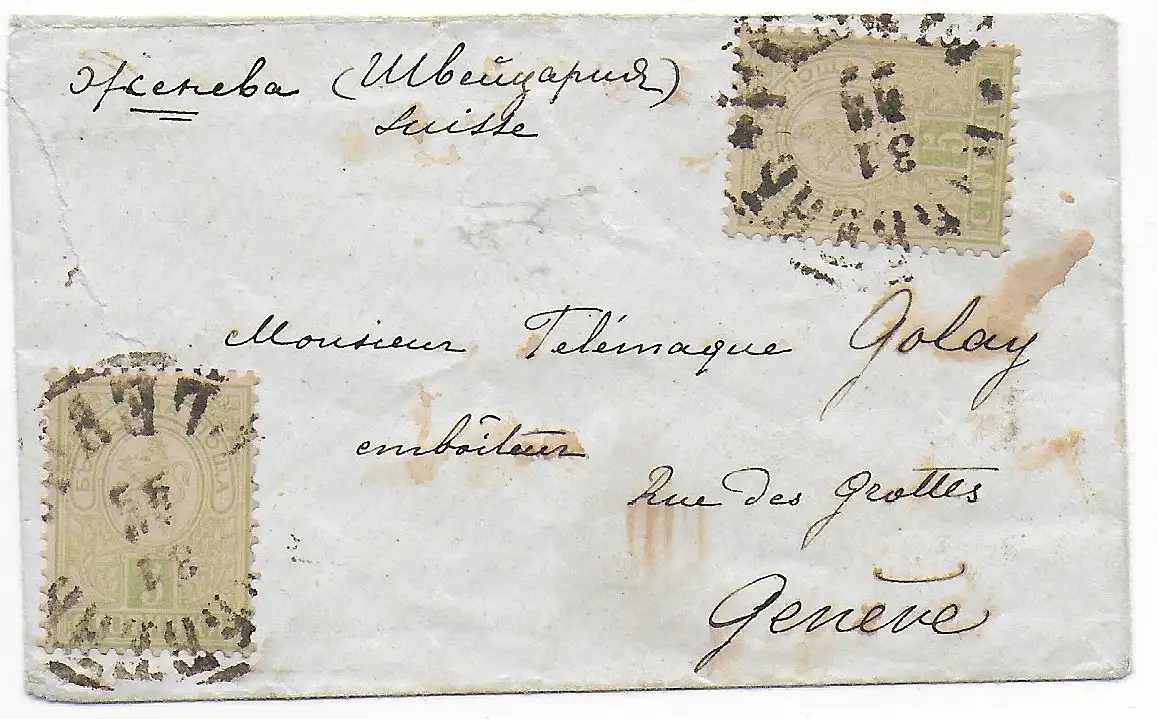 Женева (Швейцария)
Suisse
31
Monsieur Télémaque Golay
emboîteur
Rue des Grottes
Genève
5